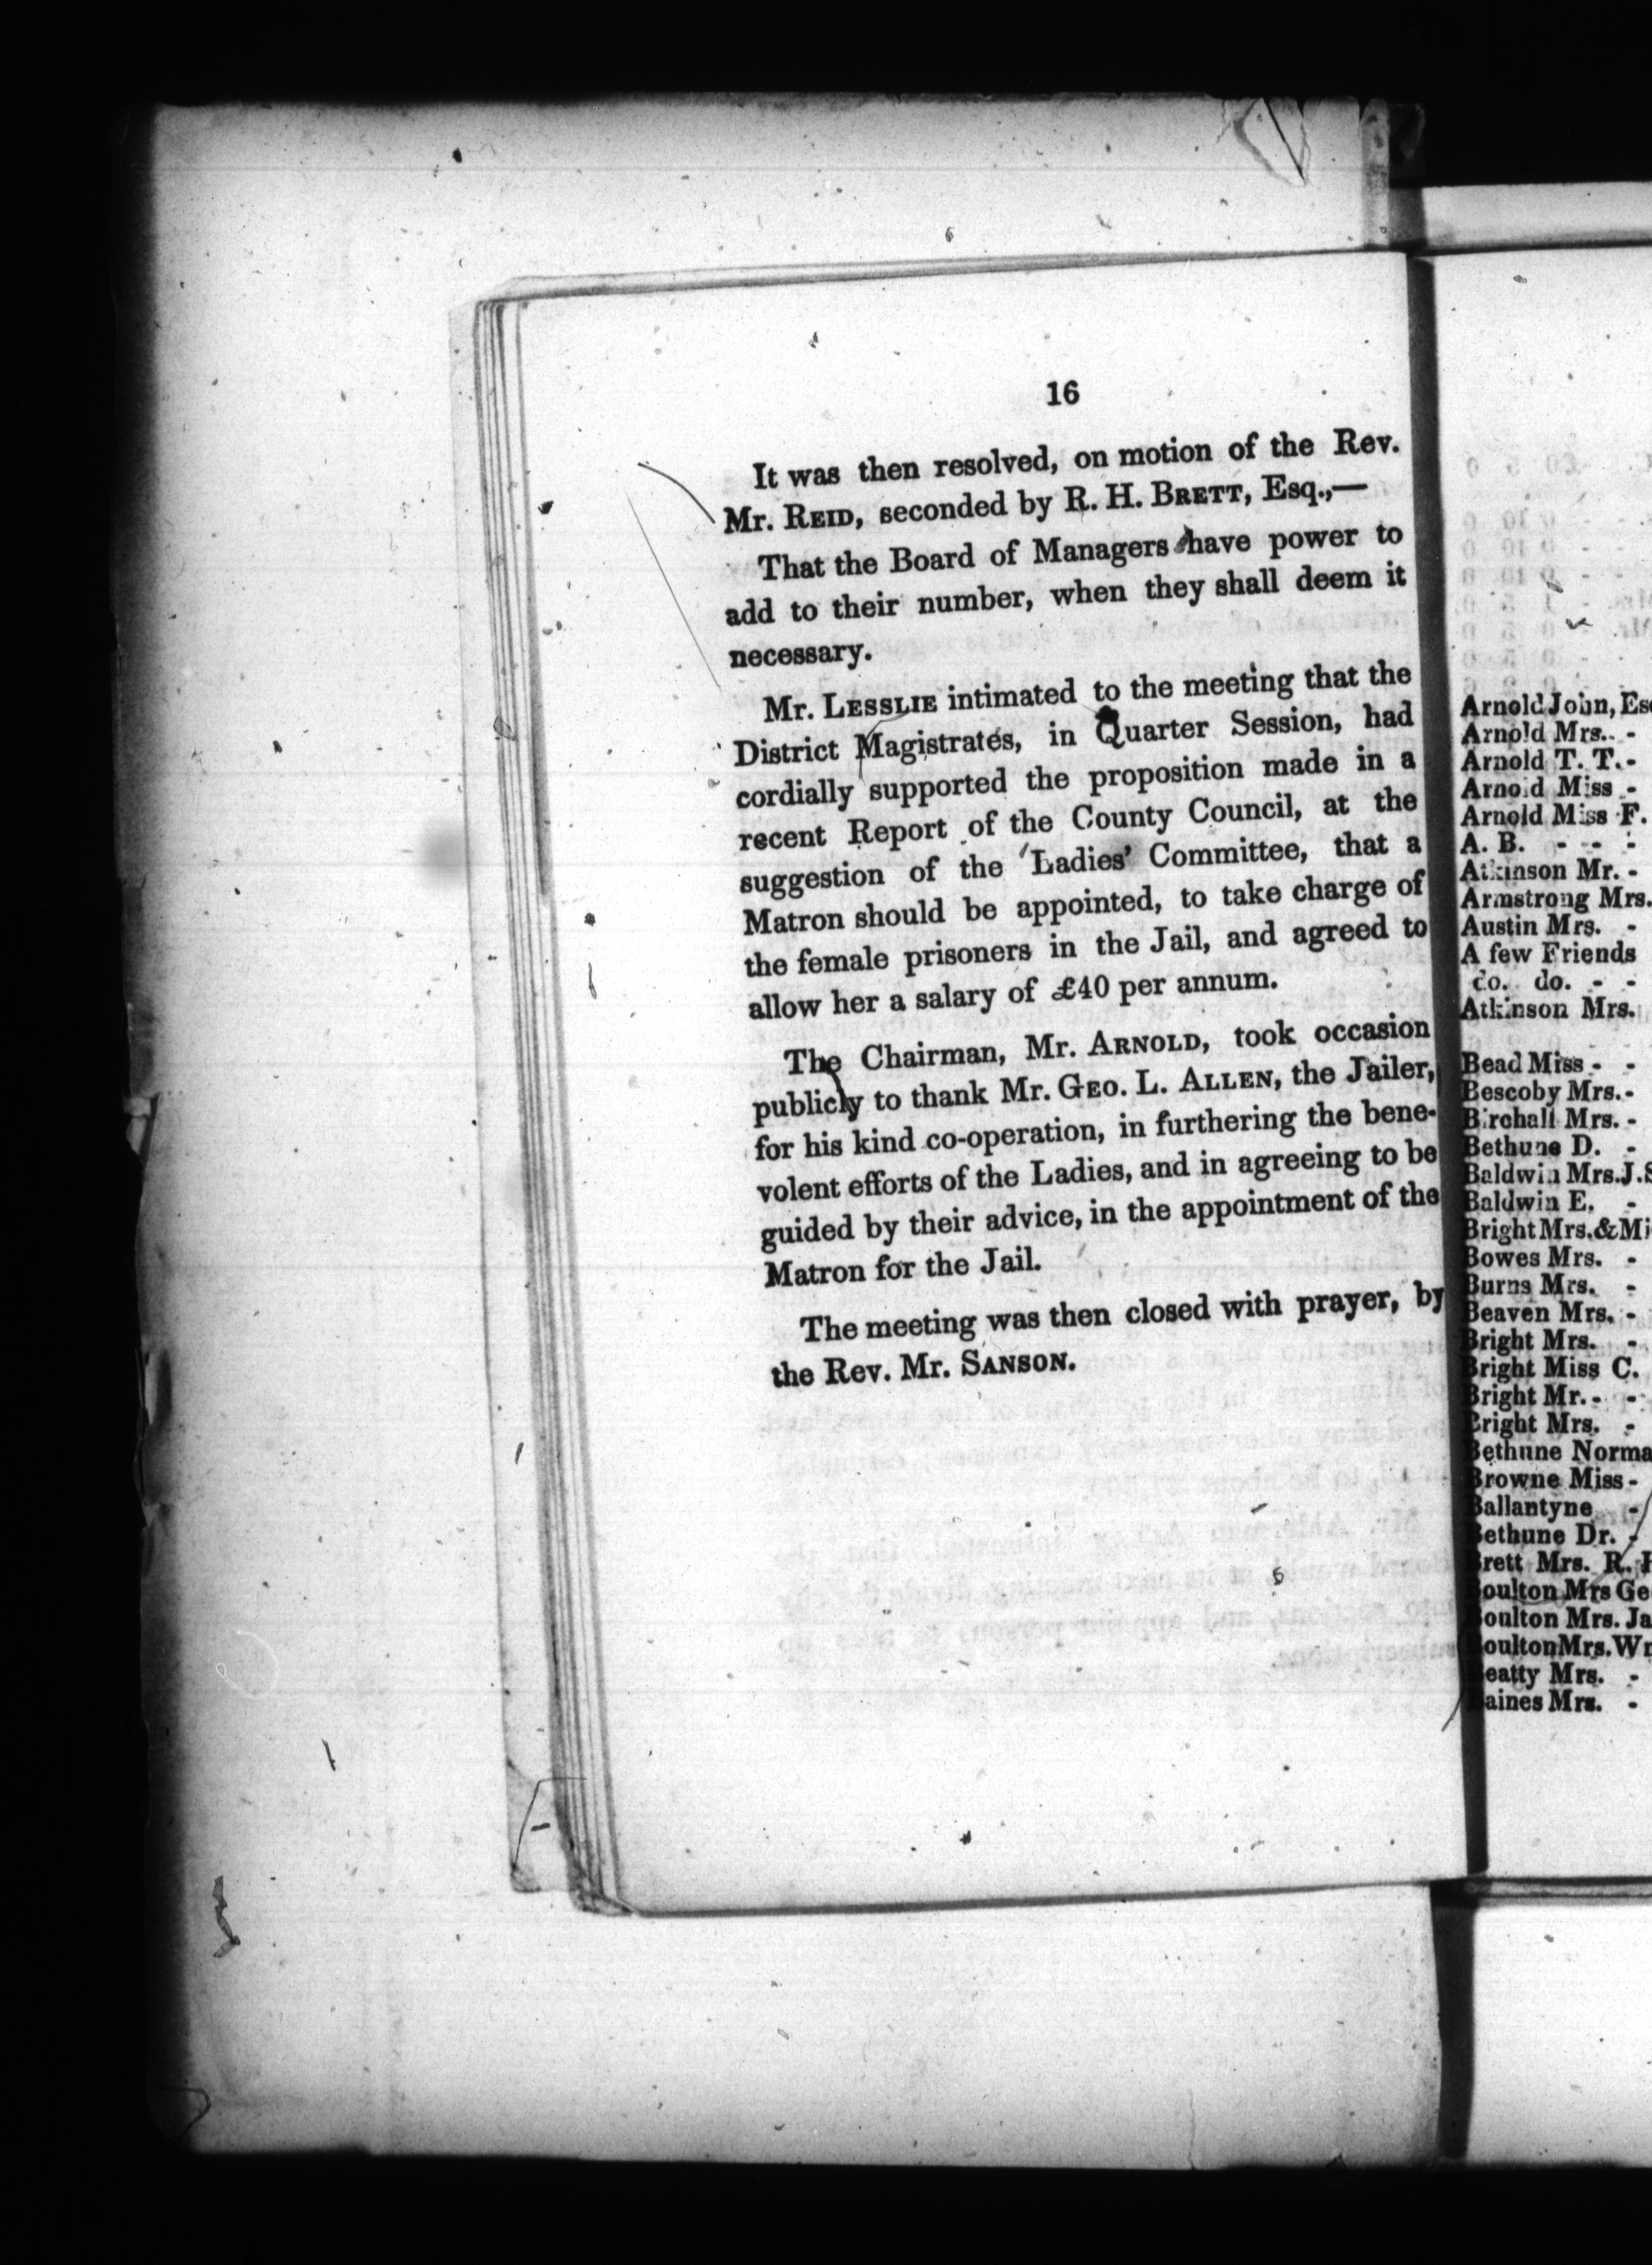 16
It was then resolved, on motion of the Rev.
Mr. REID, seconded by R. H. BRETT, Esq.,—
That the Board of Managers have power to
add to their number, when they shall deem it
necessary.
Mr. LESSLIE intimated to the meeting that the
District Magistrates, in Quarter Session, had
cordially supported the proposition made in a
recent Report of the County Council, at the
suggestion of the Ladies' Committee, that a
Matron should be appointed, to take charge of
the female prisoners in the Jail, and agreed to
allow her a salary of £40 per annum.
The Chairman, Mr. ARNOLD, took occasion
publicly to thank Mr. GEO. L. ALLEN, the Jailer,
for his kind co-operation, in furthering the bene-
volent efforts of the Ladies, and in agreeing to be
guided by their advice, in the appointment of the
Matron for the Jail.
The meeting was then closed with prayer, by
the Rev. Mr. SANSON.
Arnold John, Es
Arnold Mrs. -
Arnold T. T. -
Arnold Miss -
Arnold Miss F.
A. B. - - -
Atkinson Mr. -
Armstrong Mrs.
Austin Mrs. -
A few Friends
do. do. - -
Atkinson Mrs.
Bead Miss - -
Bescoby Mrs. -
Birchall Mrs. -
Bethune D. -
Baldwin Mrs. J. S
Baldwin E. -
Bright Mrs. & Mi
Bowes Mrs. -
Burns Mrs. -
Beaven Mrs. -
Bright Mrs. -
Bright Miss C.
Bright Mr. - -
Bright Mrs. -
Bethune Norma
Browne Miss -
Ballantyne -
Bethune Dr. -
Brett Mrs. R. H
Boulton Mrs Ge
Boulton Mrs. Ja
Boulton Mrs. W
Beatty Mrs. -
Baines Mrs. -